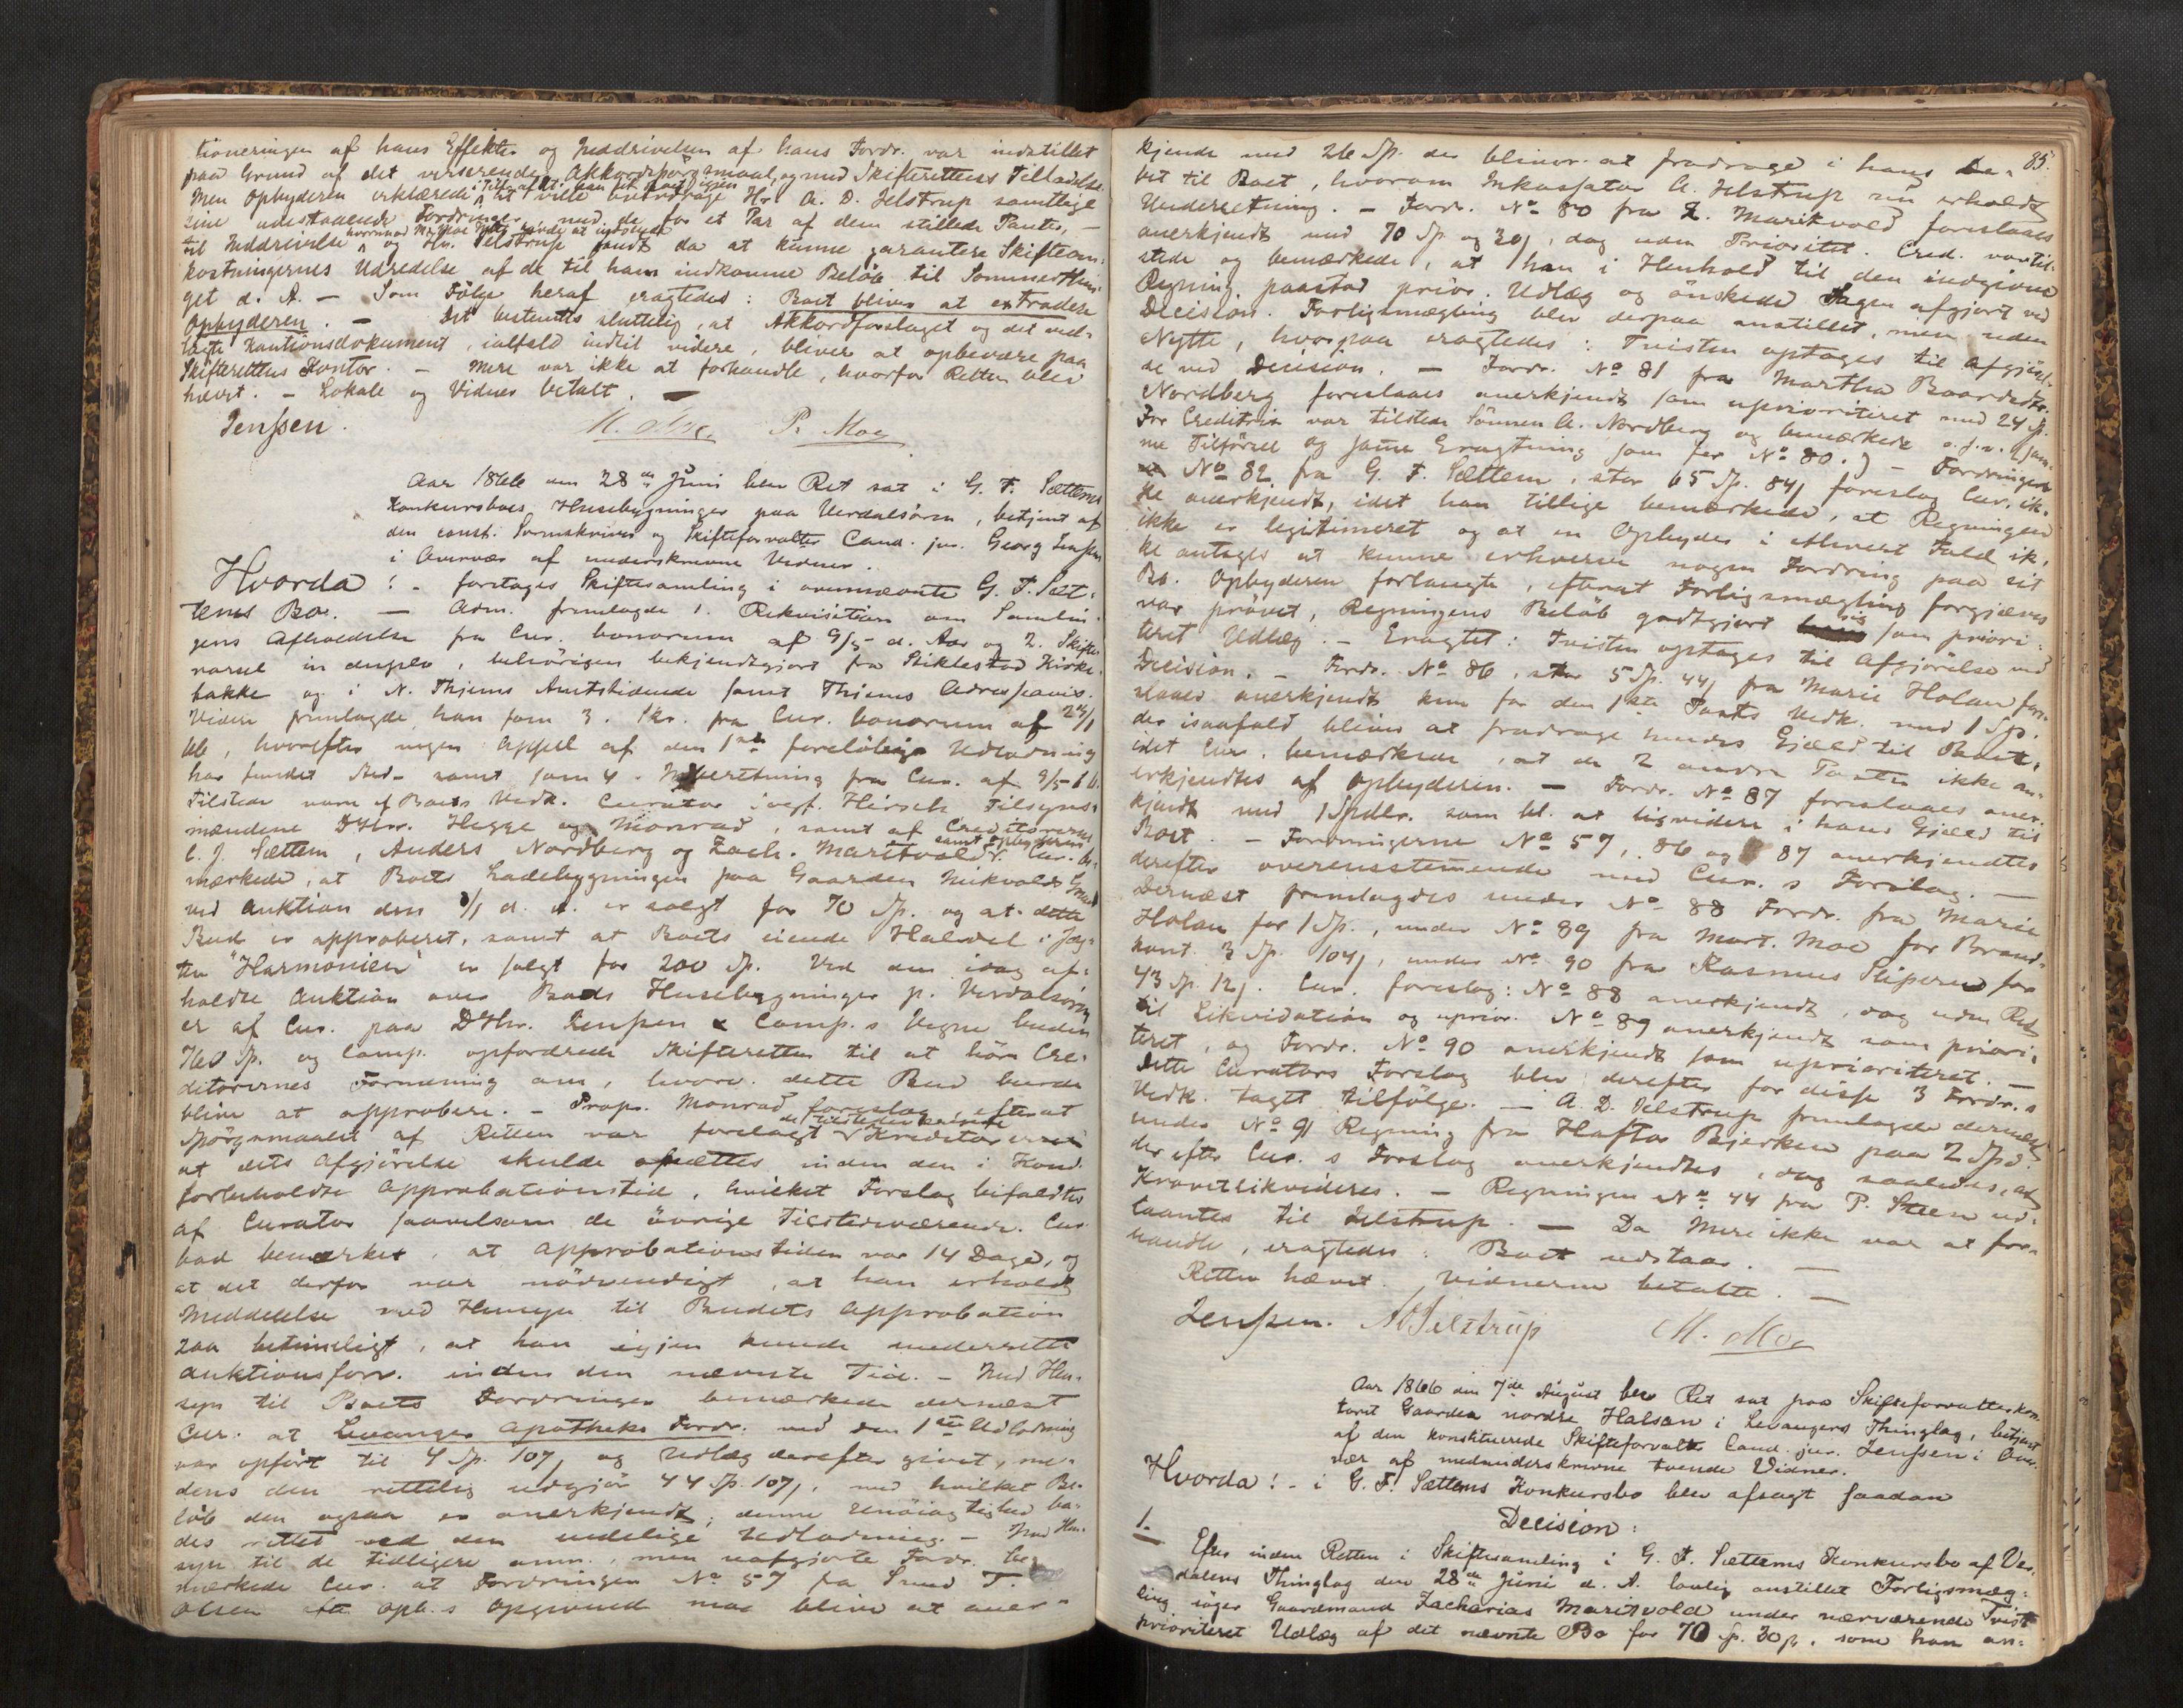 tioneringen af hans Effekter og Inddrivelsen af hans Fordr. var indstillet
paa Grund af det verserende Akkordspørgsmaal, og med Skifterettens Tilladelse.
Men Opbyderen erklærede i Tilf. af at han fik Boet igjen at ville overdrage Hr. A. D. Jelstrup samtlige
sine udestaaende Fordringer med de for et Par af dem stillede Panter, —
til Inddrivelse og Hr. Jelstrup fandt da at kunne garantere Skifteom-
kostningernes Udredelse af de til ham indkomne Beløb til Sommerthin-
get d. A. — Som Følge heraf eragtedes: Boet bliver at extradere
Opbyderen. — Det bestemtes sluttelig, at Akkordforslaget og det ved-
lagte Kautionsdokument, ialfald indtil videre, bliver at opbevare paa
Skifterettens Kontor. — Mere var ikke at forhandle, hvorfor Retten blev
hævet. — Lokale og Vidner betalt. —
Jenssen. M. Moe. P. Moe
Aar 1866 den 28de Juni blev Ret sat i G. F. Sættems
Konkursboes Husebygninger paa Verdalsøren, betjent af
den const. Sorenskriver og Skifteforvalter Cand. jur. Georg Jenssen
i Overvær af underskrevne Vidner.
Hvorda! - foretages Skiftesamling i ovennævnte G. F. Sæt-
tems Bo. — Adm. fremlagde 1. Rekvisition om Samlin-
gens Afholdelse fra Cur. bonorum af 9/5 d. Aar og 2. Skifte-
varsel in duplo, behørigen bekjendtgjort fra Stiklestad Kirke-
bakke og i N. Thjems Amtstidende samt Thjems Adresseavis.
Videre fremlagde han som 3. Skr. fra Cur. bonorum af 23/1
66, hvorefter ingen Appel af den 1ste foreløbige Udlodning
har fundet Sted - samt som 4. Indberetning fra Cur. af 9/5 66.
Tilstede vare af Boets Vedk. Curator sagf. Hirsch Tilsyns-
mændene DHrr. Hegge og Monrad, samt af Creditorerne
C. J. Sættem, Anders Nordberg og Zach. Maritvold samt Opbyderen. Cur. be-
mærkede, at Boets Ladebygningen paa Gaarden Mikvolds Grund
ved Auktion den 3/1 d. A. er solgt for 70 Sp. og at dette
Bud er approberet, samt at Boets eiende Halvdel i Jag-
ten "Harmonien" er solgt for 200 Sp. Ved den idag af-
holdte Auktion over Boets Husebygninger p. Verdalsøren
er af Cur. paa DHrr. Jenssen & Comp.s Vegne buden
760 Sp. og Comp. opfordrede Skifteretten til at høre Cre-
ditorernes Formening om, hvorv. dette Bud burde
blive at approbere. - Prop. Monrad foreslog, efterat
Spørgsmaalet af Retten var forelagt de tilstedeværende Kreditorerne
at dets Afgjørelse skulde opsættes inden den i Kond.
forbeholdte Approbationstid, hvilket Forslag bifaldtes
af Curator saavelsom de øvrige Tilstedeværende. Cur.
bad bemærket, at Approbationstiden var 14 Dage, og
at det derfor var nødvendigt, at han erholdt
Meddelelse med Hensyn til Budets Approbation
saa betimeligt, at han igjen kunde underrette
Auktionsforv. inden den nævnte Tid. - Med Hen-
syn til Boets Fordringer bemærkede dernæst
Cur. at Levanger Apotheks Fordr. ved den 1ste Udlodning
var opført til 4 Sp. 107 og Udlæg derefter givet, me-
dens den rettelig udgjør 44 Sp. 107, med hvilket Be-
løb den ogsaa er anerkjendt; denne Unøiagtighed ba-
des rettet ved den endelige Udlodning. - Med Hen-
syn til de tidligere anm., men uafgjorte Fordr. be-
mærkede Cur. at Fordringen No 57 fra Smed T.
Olsen efter Opb.s Opgivende maa blive at aner-
85.
kjende med 26 Sp. der bliver at fradrage i hans De-
bet til Boet, hvorom Inkassator A. Jelstrup nu erholdt
Underretning. - Fordr. No 80 fra Z. Maritvold foreslaaes
anerkjendt med 70 Sp og 30 /, dog uden Prioritet. Cred. var til-
stede og bemærkede, at han i Henhold til den indgivne
Regning paastod prior. Udlæg og ønskede Sagen afgjort ved
Decision. Forligsmægling blev derpaa anstillet, men uden
Nytte, hvorpaa eragtedes: Tvisten optages til Afgjørel-
se ved Decision. — Fordr. No 81 fra Martha Baardsdtr.
Nordberg foreslaaes anerkjendt som uprioriteret med 24 Sp.
For Creditrix var tilstede Sønnen A. Nordberg og bemærkede o.s.v. (sam-
me Tilførsel og samme Eragtning som for No 80.) - Fordringen
No 82 fra G. F. Sættem, stor 65 Sp. 84 / foreslog Cur. ik-
ke anerkjendt, idet han tillige bemærkede, at Regningen
ikke er legitimeret og at en Opbyder i ethvert Fald ik-
ke antages at kunne erhverve nogen Fordring paa sit
Bo. Opbyderen forlangte, efterat Forligsmægling forgjæves
var prøvet, Regningens Beløb godtgjort sig som priori-
teret Udlæg. - Eragtet: Tvisten optages til Afgjørelse ved
Decision. - Fordr. No 86, stor 5 Sp. 44 / fra Marie Holan fore-
slaaes anerkjendt kun for den 1ste Posts Vedk. med 1 Sp.
der isaafald bliver at fradrage hendes Gjæld til Boet,
idet Cur. bemærkede, at de 2 andre Poster ikke an-
erkjendtes af Opbyderen. - Fordr. No 87 foreslaaes aner-
kjendt med 1 Spdlr. som bl. at liqvidere i hans Gjæld til
Boet. - Fordringerne No 57, 86 og 87 anerkjendtes
derefter overensstemmende med Cur.s Forslag. —
Dernæst fremlagdes under No 88 Fordr. fra Marie
Holan for 1 Sp., under No 89 fra Mart. Moe for Brand-
kont. 3 Sp. 104 /, under No 90 fra Rasmus Sliperud for
43 Sp. 12 /. Cur. foreslog: No 88 anerkjendt, dog uden Ret
til Likvidation og uprior. No 89 anerkjendt som priori-
teret, og Fordr. No 90 anerkjendt som uprioriteret. —
Dette Curators Forslag blev derefter for disse 3 Fordr.s
Vedk. tagtt tilfølge. — A. D. Jelstrup fremlagde dernæst
under No 91 Regning fra Haftor Bjerken paa 2 Spd.
der efter Cur.s Forslag anerkjendtes, dog saaledes, at
Kravet likvideres. - Regningen No 44 fra P. Steen ud-
laantes til Jelstrup. — Da Mere ikke var at for-
handle, eragtedes: Boet udstaar. —
Retten hævet. Vidnerne betalte. —
Jenssen. A Jelstrup M. Moe
Aar 1866 den 7de August blev Ret sat paa Skifteforvalterkon-
toret Gaarden nordre Halsan i Levangers Thinglag, betjent
af den konstituerede Skifteforvalter Cand. jur. Jenssen i Over-
vær af medunderskrevne tvende Vidner.
Hvorda! - i G. F. Sættems Konkursbo blev afsagt saadan
Decision:
1.
Efter inden Retten i Skiftesamling i G. F. Sættems Konkursbo af Ver-
dalens Thinglag den 28de Juni d. A. lovlig anstillet Forligsmæg-
ling søger Gaardmand Zacharias Maritvold under nærværende Tvist
prioriteret Udlæg af det nævnte Bo for 70 Sp. 30 s. som han an-